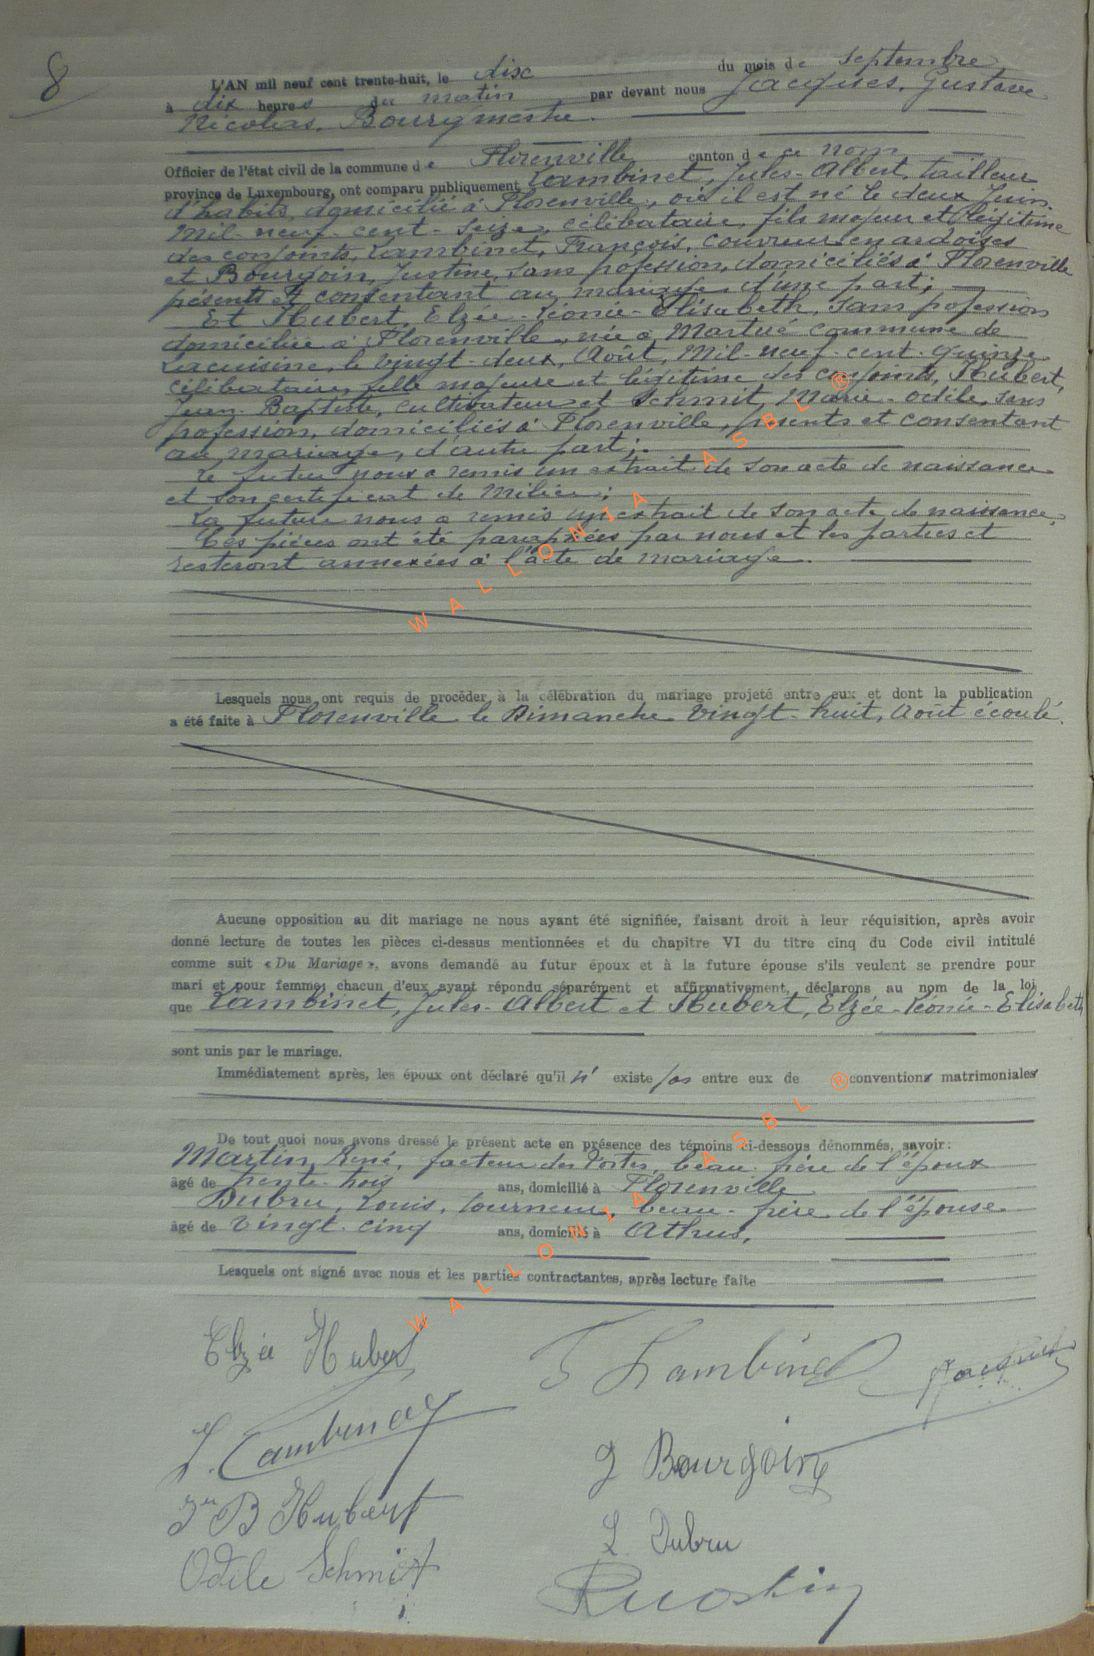 8
L'AN mil neuf cent trente-huit, le dix du mois de septembre
à dix heures du matin par devant nous Jacques, Gustave
Nicolas, Bourgmestre.
Officier de l'état civil de la commune de Florenville canton de ce nom
province de Luxembourg, ont comparu publiquement Lambinet, Jules-Albert, tailleur
d'habits, domicilié à Florenville, où il est né le deux Juin
Mil-neuf-cent-Seize, célibataire, fils majeur et légitime
des conjoints, Lambinet, François, couvreur en ardoises
et Bourgoin, Justine, sans profession, domiciliés à Florenville
présents et consentant au mariage d'une part;
Et Hubert, Elzée-Léonie-Elisabeth, sans profession
domiciliée à Florenville, née à Martué commune de
Lacuisine, le vingt-deux, Août, Mil-neuf-cent-quinze
célibataire, fille majeure et légitime des conjoints, Hubert,
Jean-Baptiste, cultivateur et Schmit, Marie-Odile, sans
profession, domiciliés à Florenville, présents et consentant
au mariage, d'autre part;
Le futur nous a remis un extrait de son acte de naissance
et son certificat de Milice;
La future nous a remis un extrait de son acte de naissance.
Ces pièces ont été paraphées par nous et les parties et
resteront annexées à l'acte de mariage.
Lesquels nous ont requis de procéder à la célébration du mariage projeté entre eux et dont la publication
a été faite à Florenville le Dimanche vingt-huit, Août écoulé.
Aucune opposition au dit mariage ne nous ayant été signifiée, faisant droit à leur réquisition, après avoir
donné lecture de toutes les pièces ci-dessus mentionnées et du chapitre VI du titre cinq du Code civil intitulé
comme suit « Du Mariage », avons demandé au futur époux et à la future épouse s'ils veulent se prendre pour
mari et pour femme; chacun d'eux ayant répondu séparément et affirmativement, déclarons au nom de la loi
que Lambinet, Jules-Albert et Hubert, Elzée-Léonie-Elisabeth
sont unis par le mariage.
Immédiatement après, les époux ont déclaré qu'il n' existe pas entre eux de conventions matrimoniales
De tout quoi nous avons dressé le présent acte en présence des témoins ci-dessous dénommés, savoir:
Martin, René, facteur des Postes, beau-frère de l'époux
âgé de trente-trois ans, domicilié à Florenville
Dubru, Louis, tourneur, beau-frère de l'épouse
âgé de vingt-cinq ans, domicilié à Athus.
Lesquels ont signé avec nous et les parties contractantes, après lecture faite
Elzée Hubert
F Lambinet
Jacques
J. Lambinet
J Bourgoin
Jn B Hubert
L. Dubru
Odile Schmit
R Martin
WALLONIA ASBL ®
WALLONIA ASBL ®